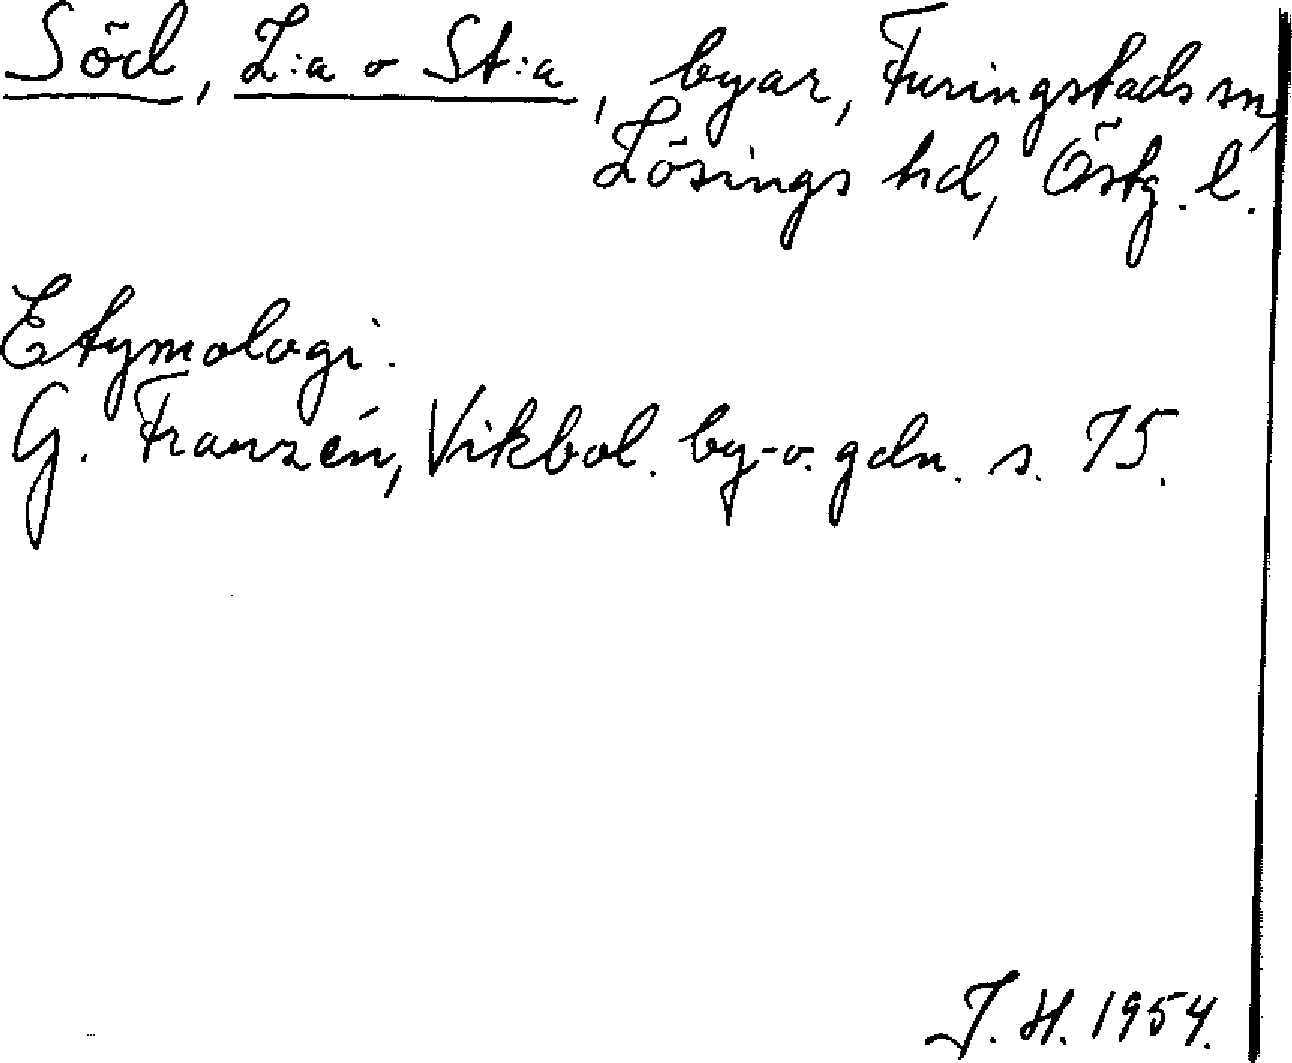 Söd, L:a o St:a, byar, Furingstads sn,
Lösings hd, Östg. l.
Etymologi.
G. Franzén, Vikbol. by- o. gdn. s. 75.
J. H. 1954.